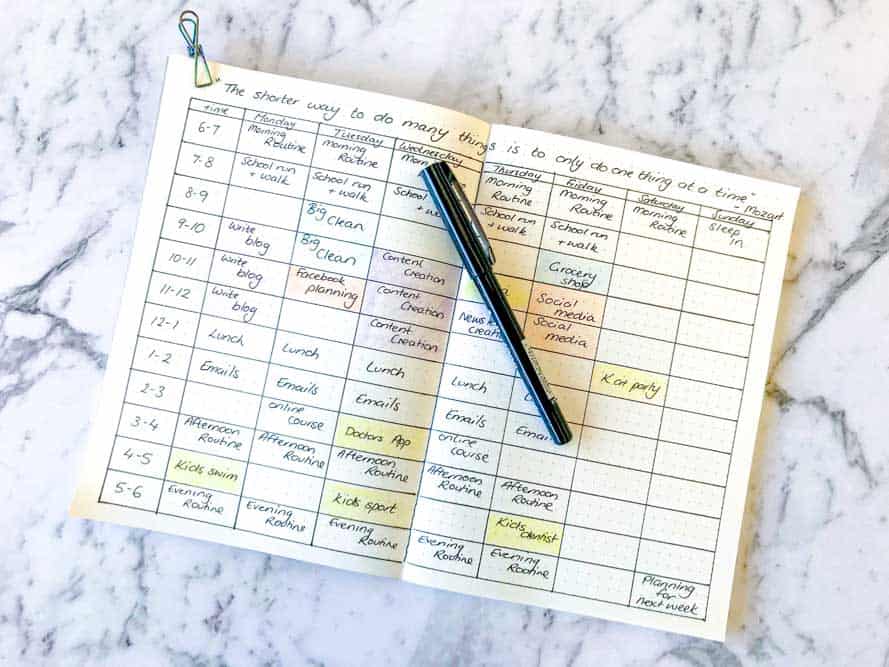 The shorter way to do many things is to only do one thing at a time"
- Mozart
time
Monday
Tuesday
Wednesday
Thursday
Friday
Saturday
Sunday
6-7
Morning
Routine
Morning
Routine
Morning
Routine
Morning
Routine
Morning
Routine
Sleep
in
7-8
School run
+ walk
School run
+ walk
School
School run
+ walk
School run
+ walk
8-9
Big
Clean
Grocery
shop
9-10
Write
blog
Big
Clean
Content
Creation
Social
media
10-11
Write
blog
Facebook
planning
Content
Creation
Social
media
11-12
Write
blog
Content
Creation
12-1
Lunch
Lunch
Lunch
Lunch
K at party
1-2
Emails
Emails
Emails
Emails
Emails
2-3
online
course
Doctors App
online
course
3-4
Afternoon
Routine
Afternoon
Routine
Afternoon
Routine
Afternoon
Routine
Afternoon
Routine
4-5
Kids swim
Kids sport
Kids
dentist
5-6
Evening
Routine
Evening
Routine
Evening
Routine
Evening
Routine
Evening
Routine
Planning
for
next week